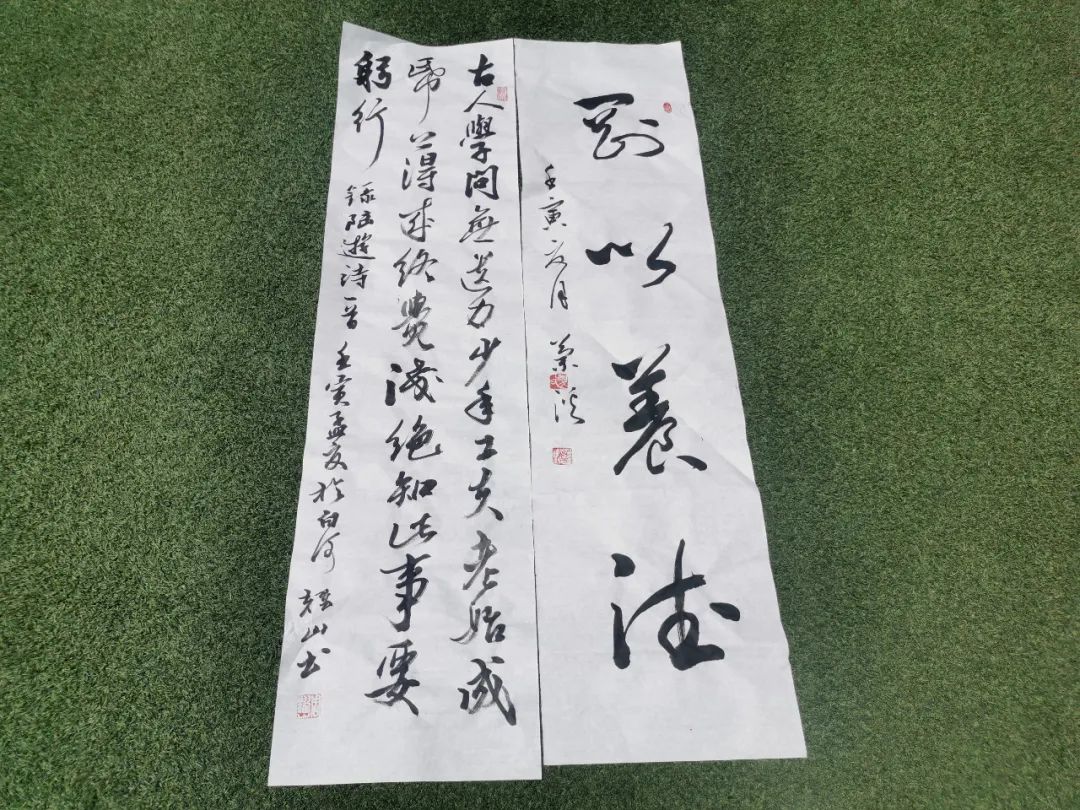 以養德
壬寅夏月
古人學問無遺力少年工夫老始成
帋上得來終覺淺絕知此事要
躬行
錄陸遊詩一首 壬寅孟夏於白河 山书